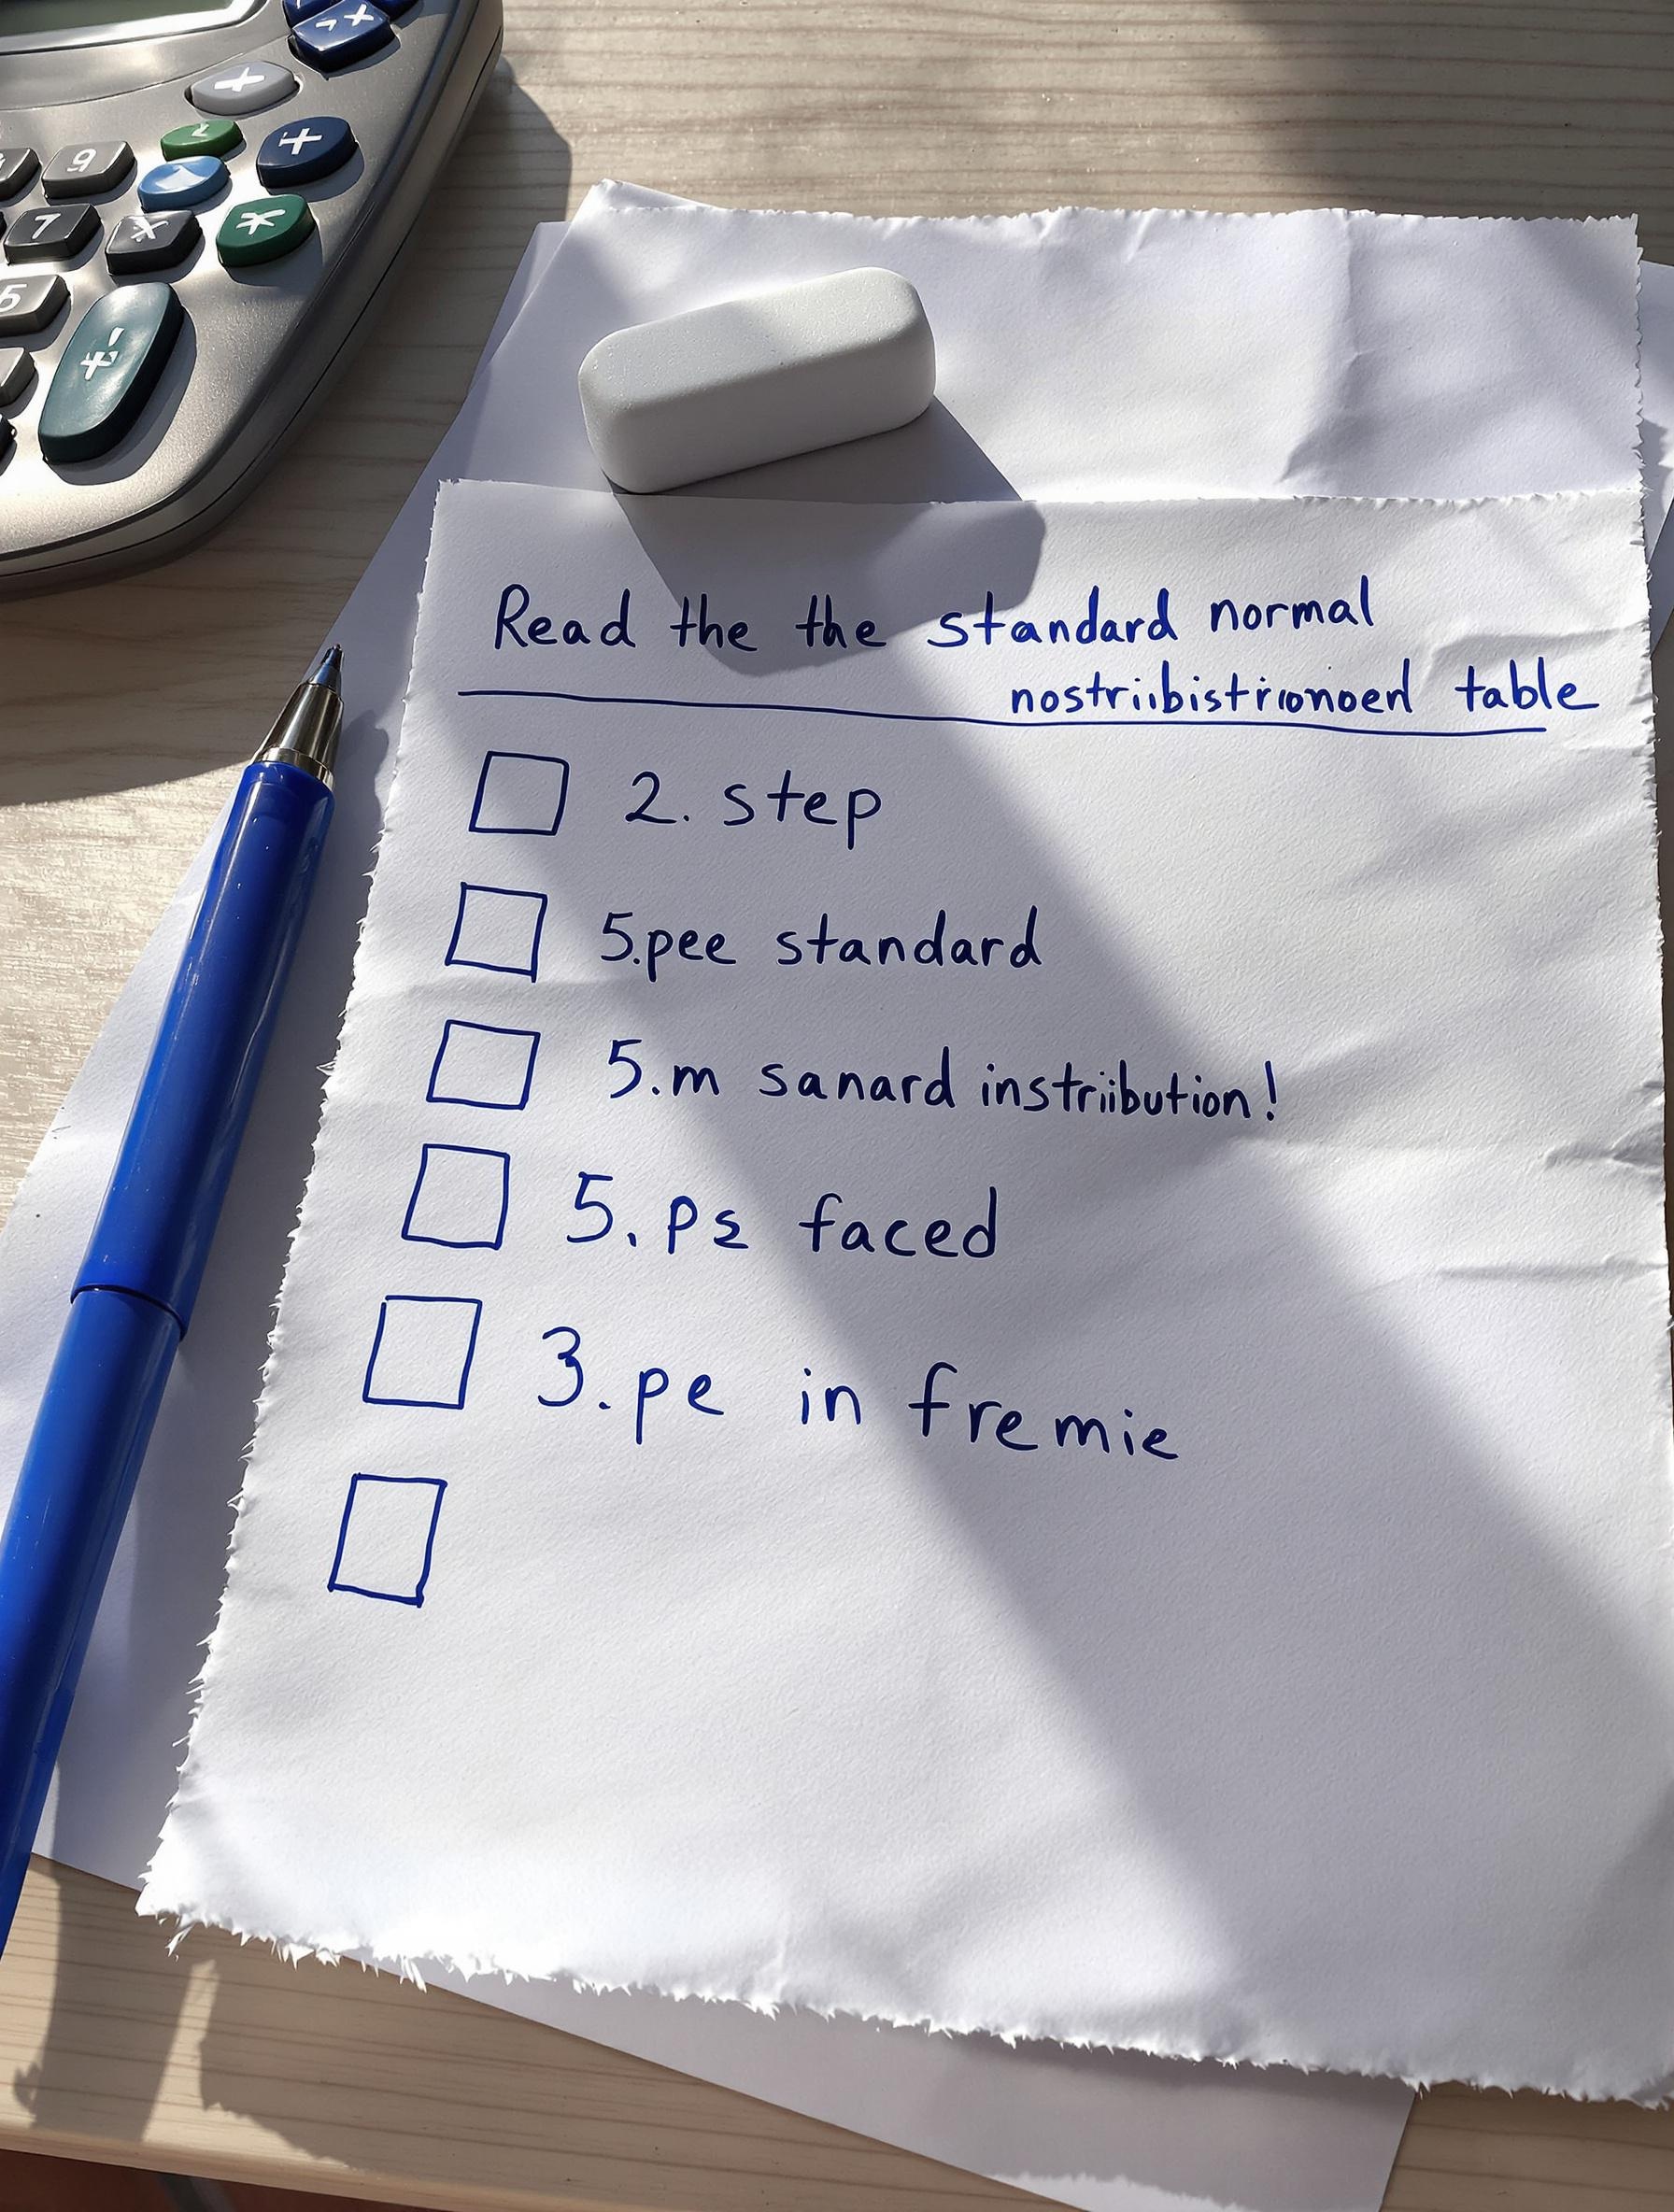 Read the the standard normal
nostriibistrionoerl table
2. step
5.pee standard
5.m sanard instriibution!
5. ps faced
3.pe in fremie
9
7
5